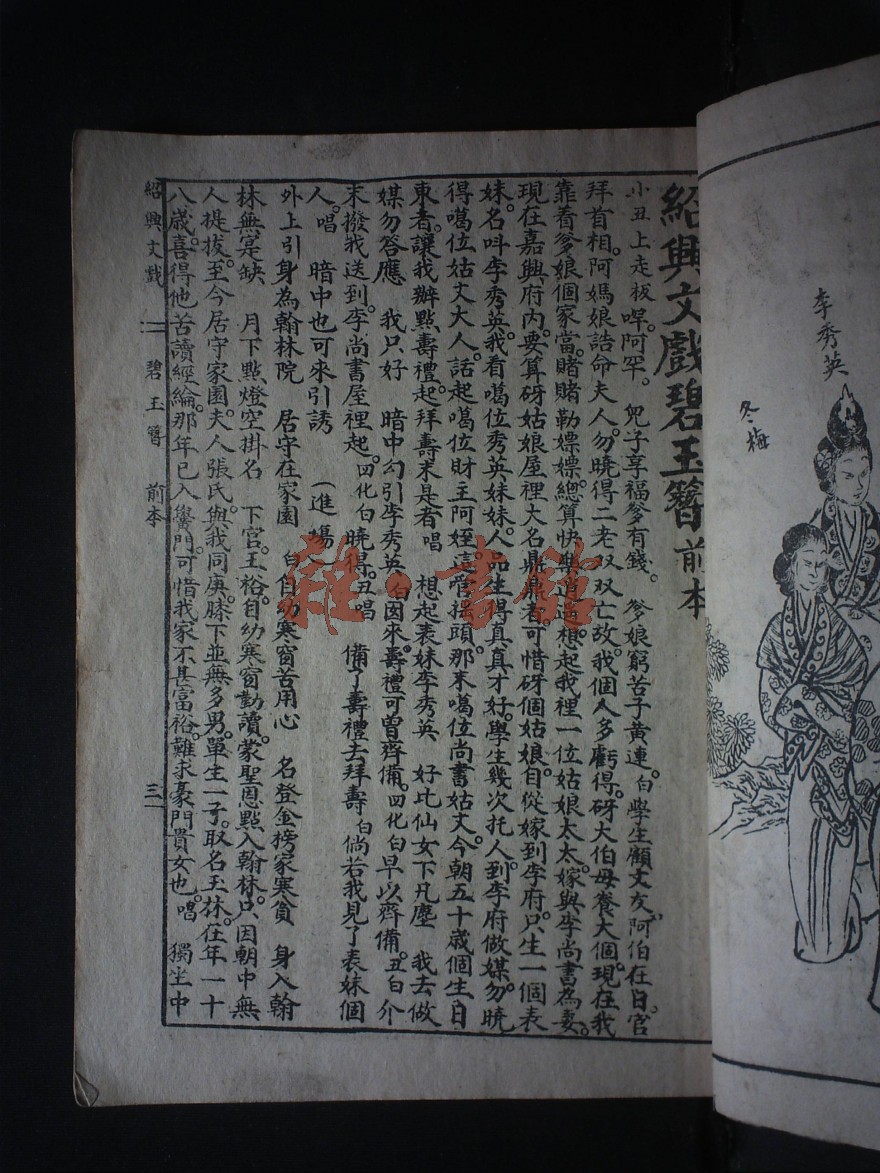 李秀英
冬梅
紹興文戲碧玉簪前本
小丑上走板哻。阿罕。 兒子享福爹有錢。 爹娘窮苦子黄連。白學生顧文友。阿伯在日。官
拜首相。阿媽娘誥命夫人。勿曉得二老双双亡故。我個人多虧得。砑大伯母養大個。現在我
靠着爹娘個家當。賭賭勒嫖嫖。總算快樂逍遥。想起我裡一位姑娘太太。嫁與李尚書為妻。
現在嘉興府内。要算砑姑娘屋裡大名鼎鼎者。可惜砑個姑娘。自從嫁到李府。只生一個表
妹。名呌李秀英。我看噶位秀英妹妹。人品生得真真才好。學生幾次托人。到李府做媒。勿曉
得噶位姑丈大人。話起噶位財主阿姪。這管摇頭。那末噶位尚書姑丈。今朝五十歲個生日
東者。讓我辦點壽禮。起拜壽末是者 唱 想起表妹李秀英 好比仙女下凡塵 我去做
媒勿答應 我只好 暗中勾引李秀英 白因來。壽禮可曾齊備。四化白早以齊備。丑白介
末撥我送到。李尚書屋裡起。四化白 曉得。丑唱 備了壽禮去拜壽 白倘若我見了表妹個
人。唱 暗中也可來引誘 (進塲)
外上引 身為翰林院 居守在家園 白自幼寒窗苦用心 名登金榜家寒貧 身入翰
林無寔缺 月下點燈空掛名 下官。王裕。自幼寒窗勤讀。蒙聖恩點入翰林。只因朝中無
人提拔。至今居守家園。夫人張氏。與我同庚。膝下並無多男。單生一子。取名玉林。在年一十
八歲。喜得他苦讀經綸。那年已入黌門。可惜我家不甚富裕。難求豪門貴女也。唱 獨坐中
紹興文戲 碧玉簪 前本 三
雜·書館